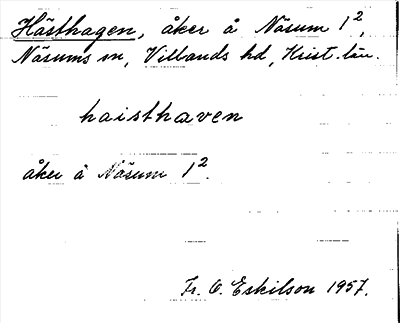 Hästhagen, åker å Näsum 1²,
Näsums sn, Villands hd, Krist. län.
haisthaven
åker å Näsum 1².
Fr. O. Eskilson 1957.